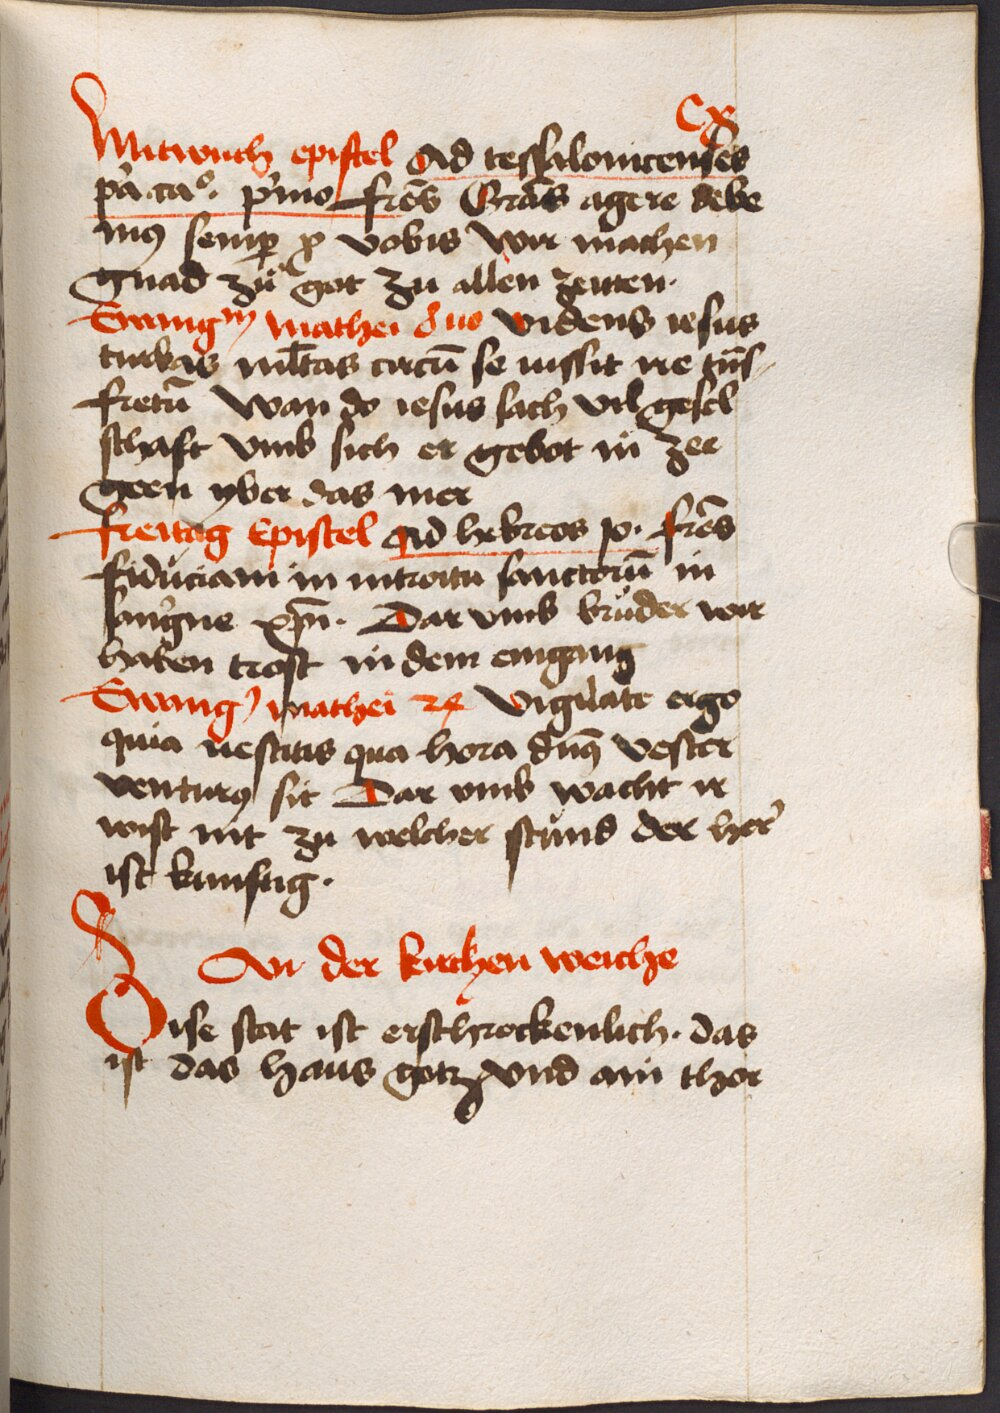 Cx
Mitwuch epistel Ad tessalonicenses
p'a ca°. p'mo fr̄es Grās agere debe
mꝰ semꝑ ꝓ vobis Wir machen
gnad zů got zu allen zeiten.
Ewangᵐ mathei 8uo Videns iesus
turbas mltas circū se iussit ire tūs
fretū Wan do iesus sach vil gesel
schaft vmb sich er gebot in zer
geen yber das mer
freitag Epistel Ad hebreos 10. fr̄es
fiduciam in introitu sanctorū in
san'gne xp̄i. Dar vmb brůder wir
haben trost in dem eingang
Ewangˀ mathei 24 Vigilate ergo
quia nescitis qua hora dn̄ꝰ vester
venturꝰ sit Dar vmb wacht ir
wist nit zu welcher stund der her'
ist kunftig.
An der kirchen weiche
Dise stat ist erschrockenlich. das
ist das haus gotz vnd ain thor